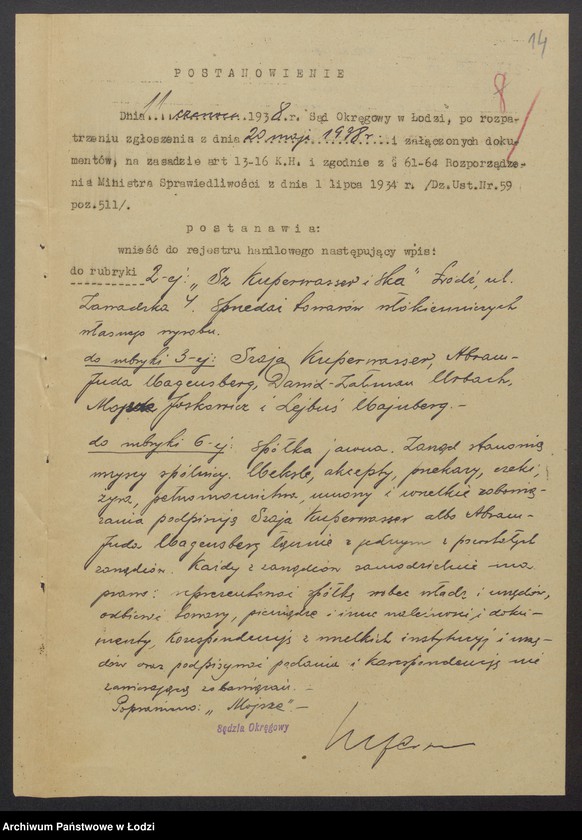 14
8
POSTANOWIENIE
Dnia 11 czerwca 1938.r. Sąd Okręgowy w Łodzi, po rozpa-
trzeniu zgłoszenia z dnia 20 maja 1938 r. i załączonych doku-
mentów, na zasadzie art 13-16 K.H. i zgodnie z § 61-64 Rozporządze-
nia Ministra Sprawiedliwości z dnia 1 lipca 1934 r. /Dz.Ust.Nr.59
poz.511/.
postanawia:
wnieść do rejestru handlowego następujący wpis:
do rubryki 2-ej: „Sz Kuperwasser i Ska" Łódź, ul.
Zawadzka 4. Sprzedaż towarów włókienniczych
własnego wyrobu.
do rubryki 3-ej: Szaja Kuperwasser, Abram-
Juda Wagensberg, Dawid-Załman Urbach,
Joskowicz i Lejbuś Wajnberg.-
do rubryki 6-ej: Spółka jawna. Zarząd stanowią
wszyscy spólnicy. Weksle, akcepty, przekazy, czeki,
żyra, pełnomocnictwa, umowy i wszelkie zobowią-
zania podpisują Szaja Kuperwasser albo Abram-
Juda Wagensberg łącznie z jednym z pozostałych
zarządców. Każdy z zarządców samodzielnie ma
prawo: reprezentować spółkę wobec władz i urzędów,
odbierać towary, pieniądze i inne należności i doku-
menty, korespondencję z wszelkich instytucyj i urzę-
dów oraz podpisywać podania i korespondencję nie
zawierającą zobowiązań.-
Poprawiono: „Mojsze".-
Sędzia Okręgowy
Archiwum Państwowe w Łodzi